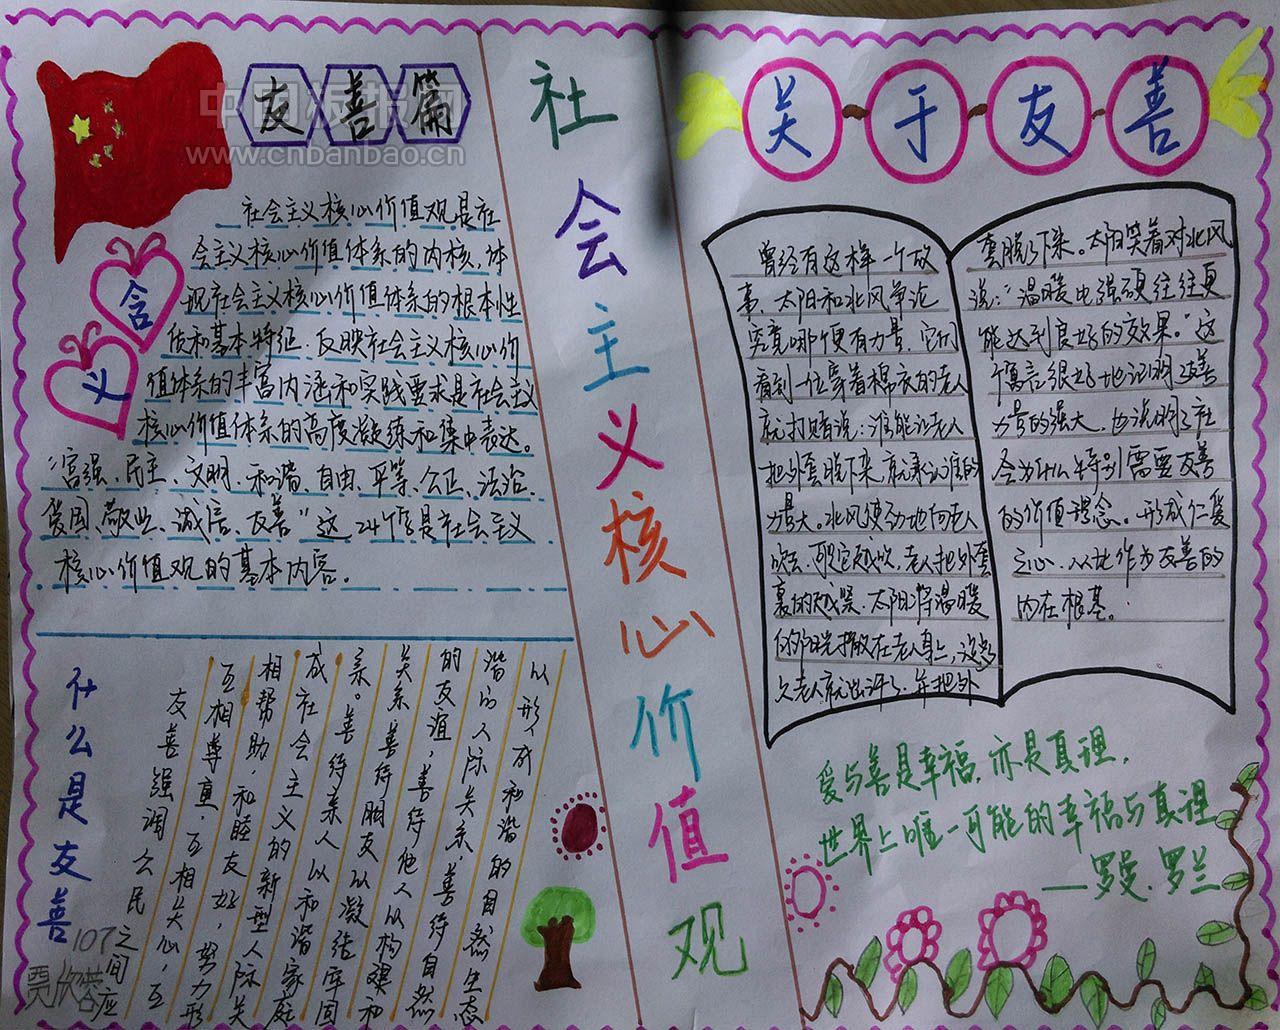 中国板报网
www.cnbanbao.cn
友善篇
含义
社会主义核心价值观是社
会主义核心价值体系的内核,体
现社会主义核心价值体系的根本性
质和基本特征,反映社会主义核心价
值体系的丰富内涵和实践要求是社会主义
核心价值体系的高度凝练和集中表达。
“富强、民主、文明、和谐、自由、平等、公正、法治、
爱国、敬业、诚信、友善”这24个字是社会主义
核心价值观的基本内容。
什么是友善
友善强调公民之间应
互相尊重,互相关心,互
相帮助,和睦友好,努力形
成社会主义的新型人际关
系。善待亲人以和谐家庭
关系,善待朋友以凝结牢固
的友谊,善待他人以构建和
谐的人际关系,善待自然
以形成和谐的自然生态
107
贾欣蓉
社会主义核心价值观
关于友善
曾经有这样一个故
事,太阳和北风争论
究竟哪个更有力量,它们
看到一位穿着棉衣的老人
就打赌说:谁能让老人
把外套脱下来,就承认谁的
力量大。北风使劲地向老人
吹去,可它越吹,老人把外套
裹的越紧,太阳将温暖
的阳光播撒在老人身上,没多
久老人就出汗了,并把外
套脱了下来。太阳笑着对北风
说:“温暖也强硬往往更
能达到良好的效果。”这
个寓言很好地证明了友善
力量的强大,也说明了社
会为什么特别需要友善
的价值理念。形成仁爱
之心,以此作为友善的
内在根基。
爱与善是幸福,亦是真理,
世界上唯一可能的幸福与真理
——罗曼.罗兰